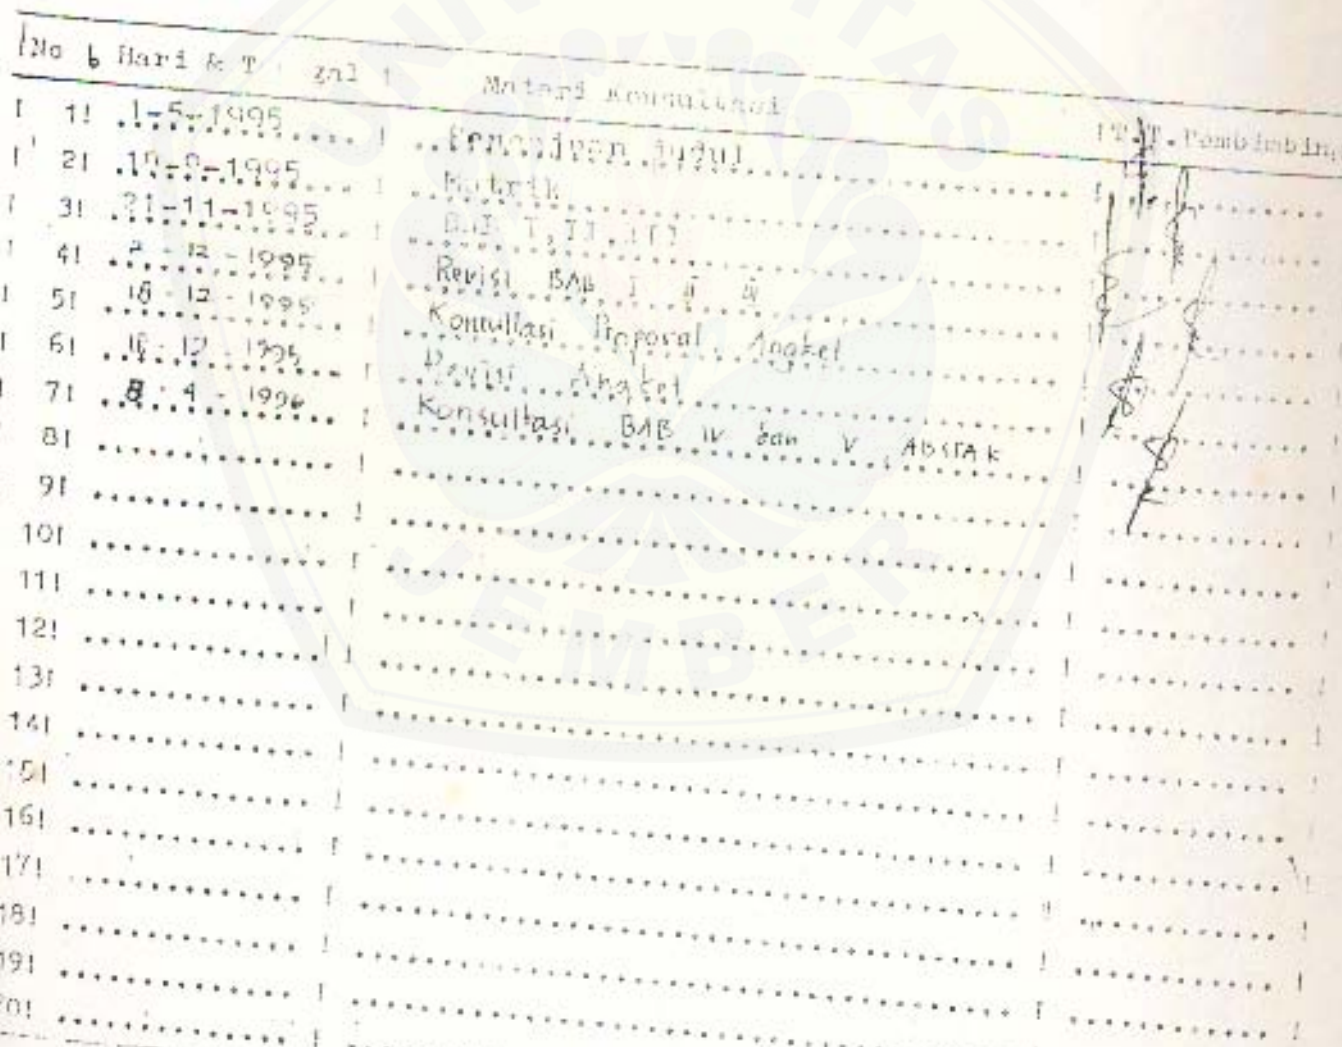 UNIVERSITAS JEMBER
No Hari & T gal Materi Konsultasi T.T. Pembimbing
1! 1-5-1995 judul
2! -1995 Matrik
3! 21-11-1995 BAB I, II, III
4! - 12 - 1995 Revisi BAB I II
5! 18 - 12 - 1995 Konsultasi Proposal, Angket
6! - 12 - 1995 Revisi Angket
7! 8 - 4 - 1996 Konsultasi BAB IV dan V, ABSTAK
8!
9!
10!
11!
12!
13!
14!
15!
16!
17!
18!
19!
20!